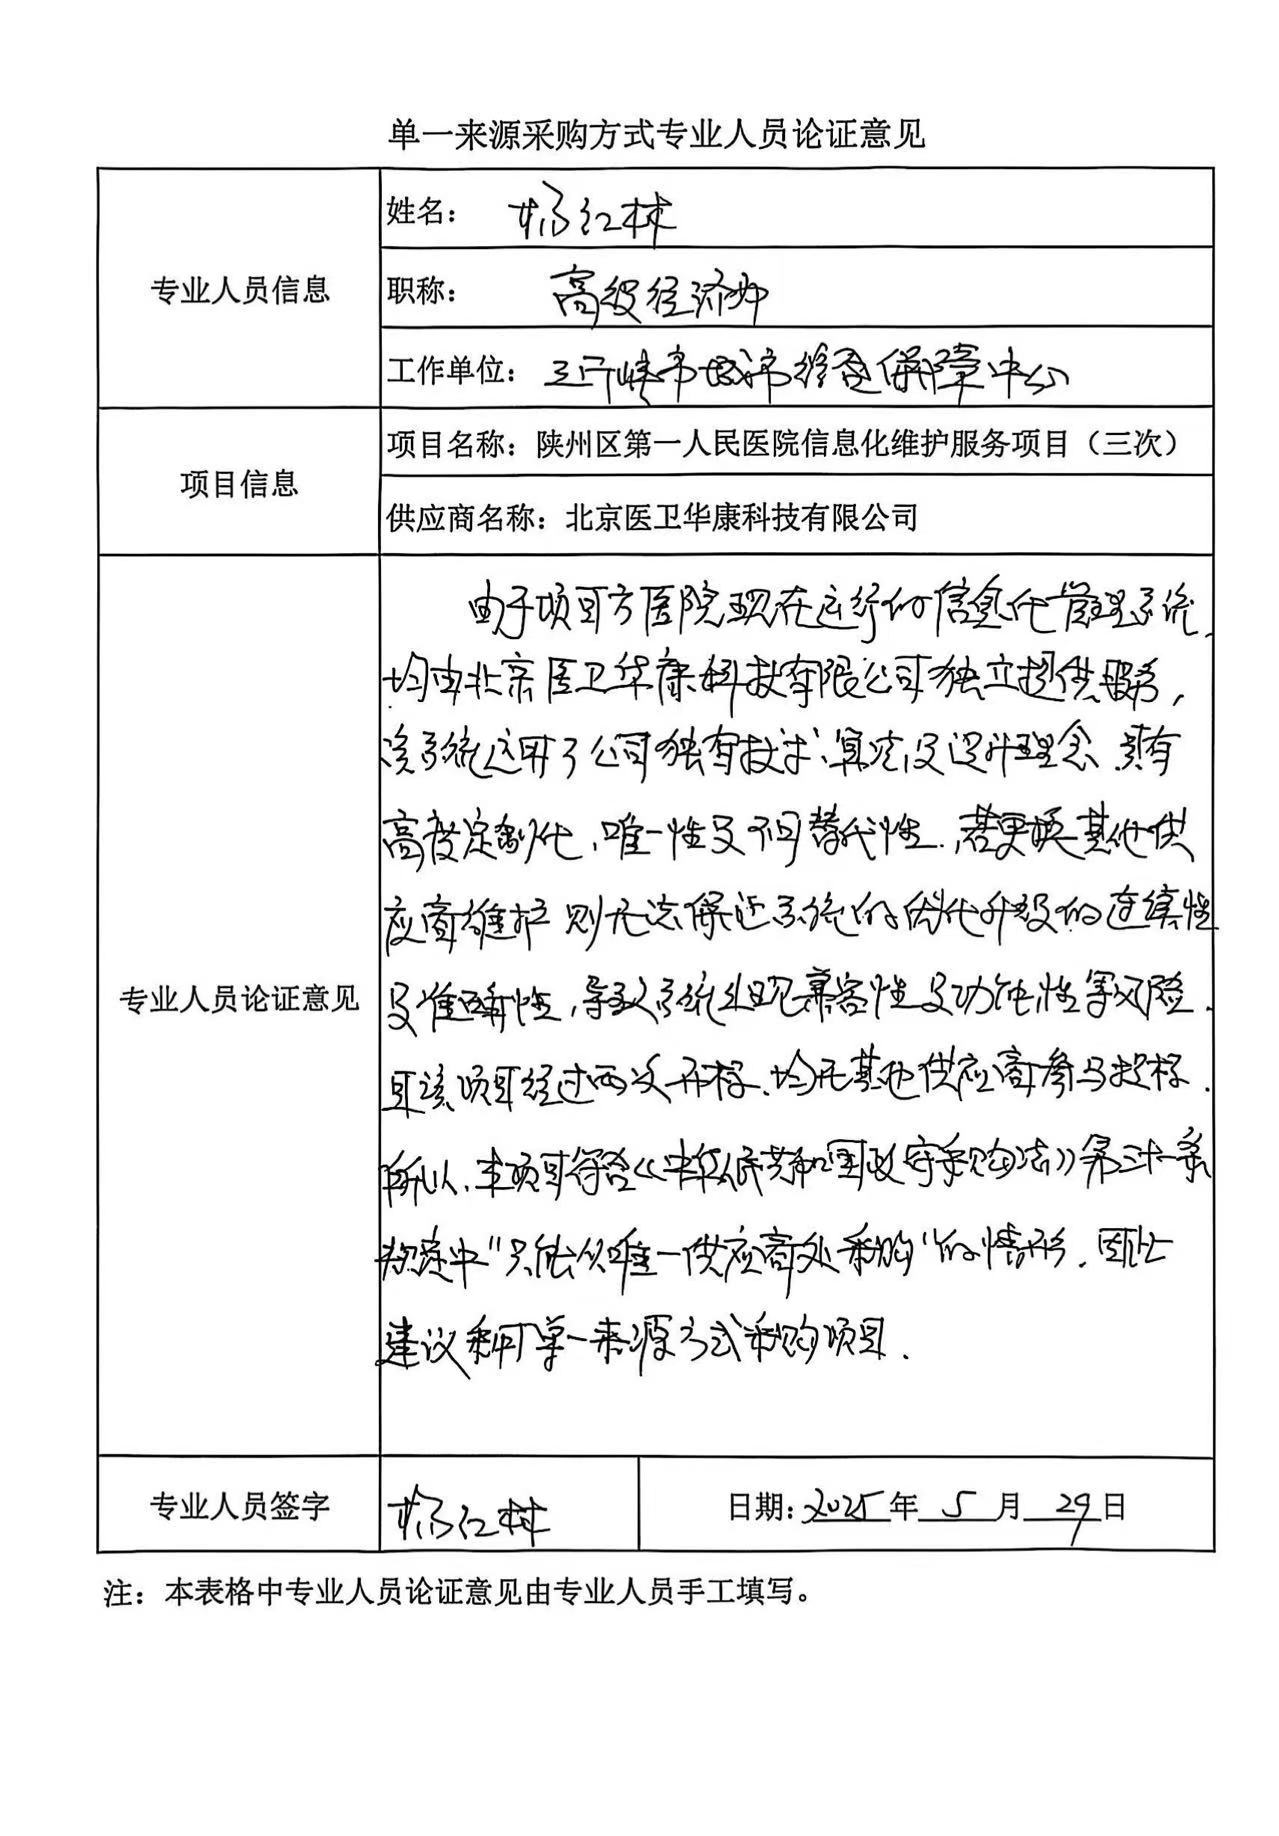 单一来源采购方式专业人员论证意见
专业人员信息
姓名： 杨红林
职称： 高级经济师
工作单位：三门峡市城市修造保障中心
项目信息
项目名称：陕州区第一人民医院信息化维护服务项目（三次）
供应商名称：北京医卫华康科技有限公司
专业人员论证意见
由于项目方医院现在运行的信息化管理系统，
均由北京医卫华康科技有限公司独立提供服务，
该系统运用了公司独有技术、算法及设计理念、具有
高度定制化、唯一性及不可替代性。若更换其他供
应商维护 则无法保证系统的优化升级的连续性
及准确性，导致系统出现兼容性及功能性等风险。
且该项目经过两次开标、均无其他供应商参与投标。
所以、本项目符合《中华人民共和国政府采购法》第三十一条
规定中“只能从唯一供应商处采购”的情形。因此
建议采用单一来源方式采购项目。
专业人员签字
杨红林
日期：2025年 5 月 29日
注：本表格中专业人员论证意见由专业人员手工填写。